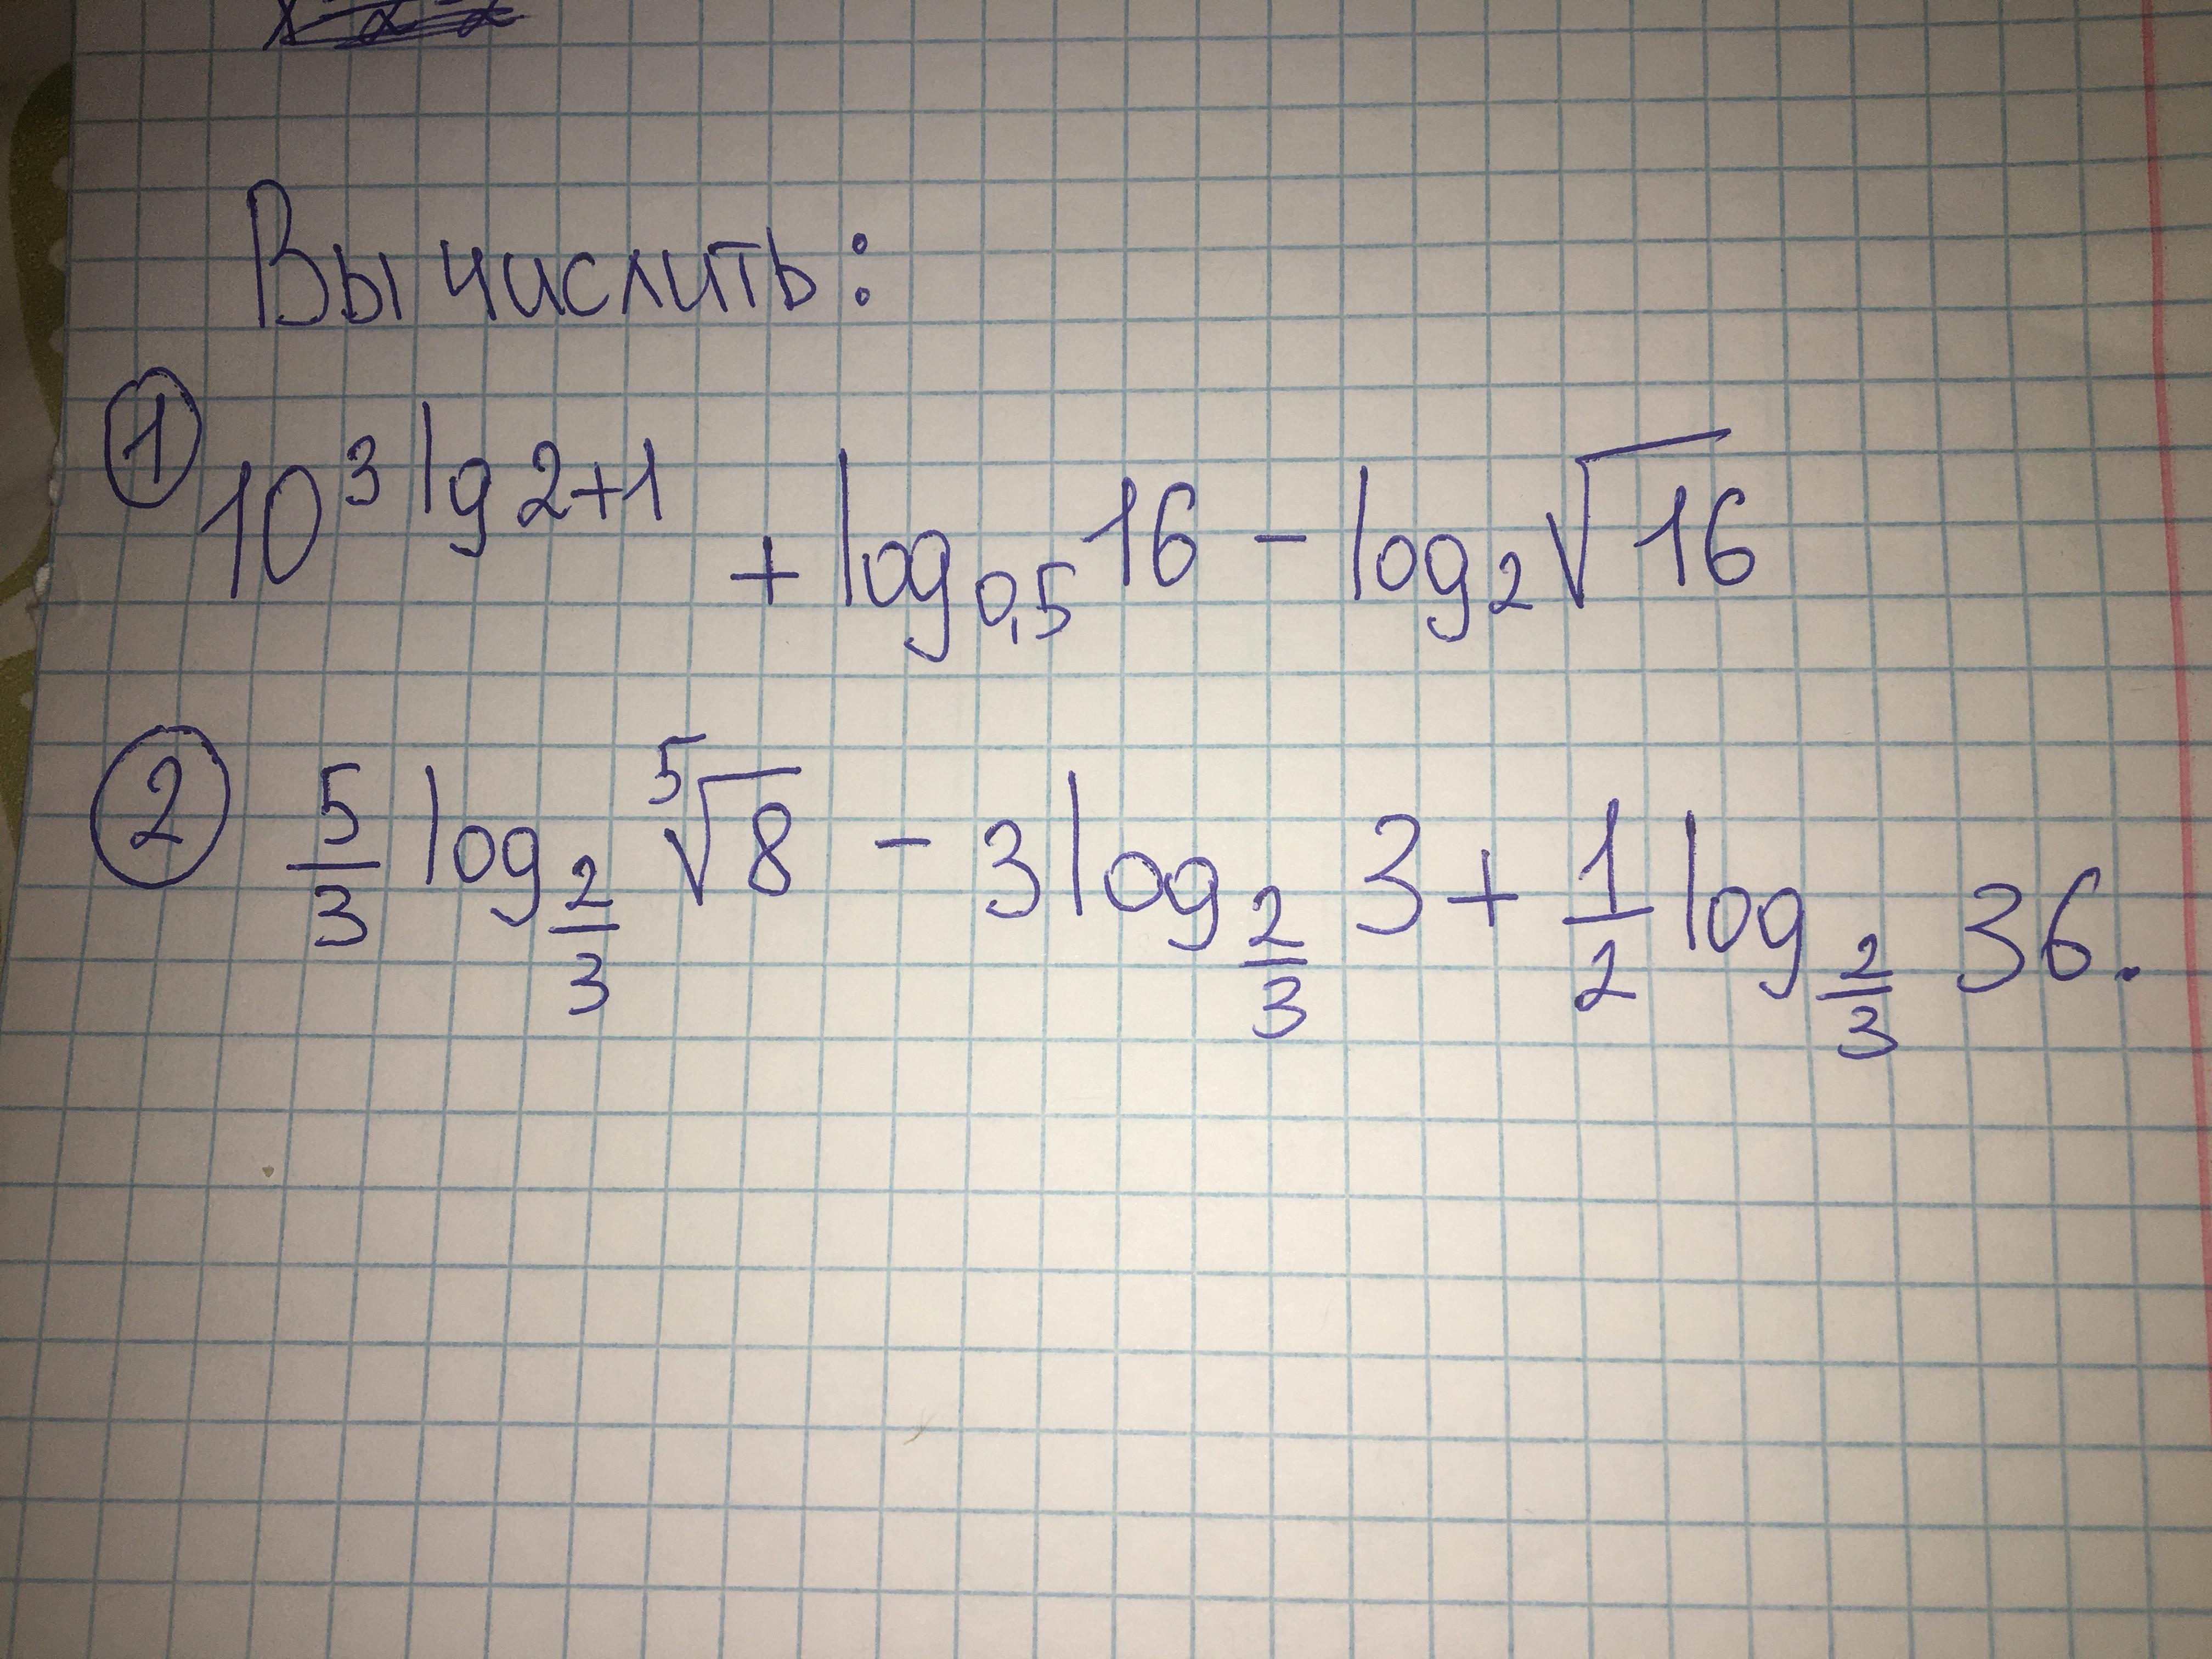 Вычислить:
① 10^{3 lg 2+1} + log_{0,5} 16 - log_2 √16
② 5/3 log_{2/3} ⁵√8 - 3 log_{2/3} 3 + 1/2 log_{2/3} 36.